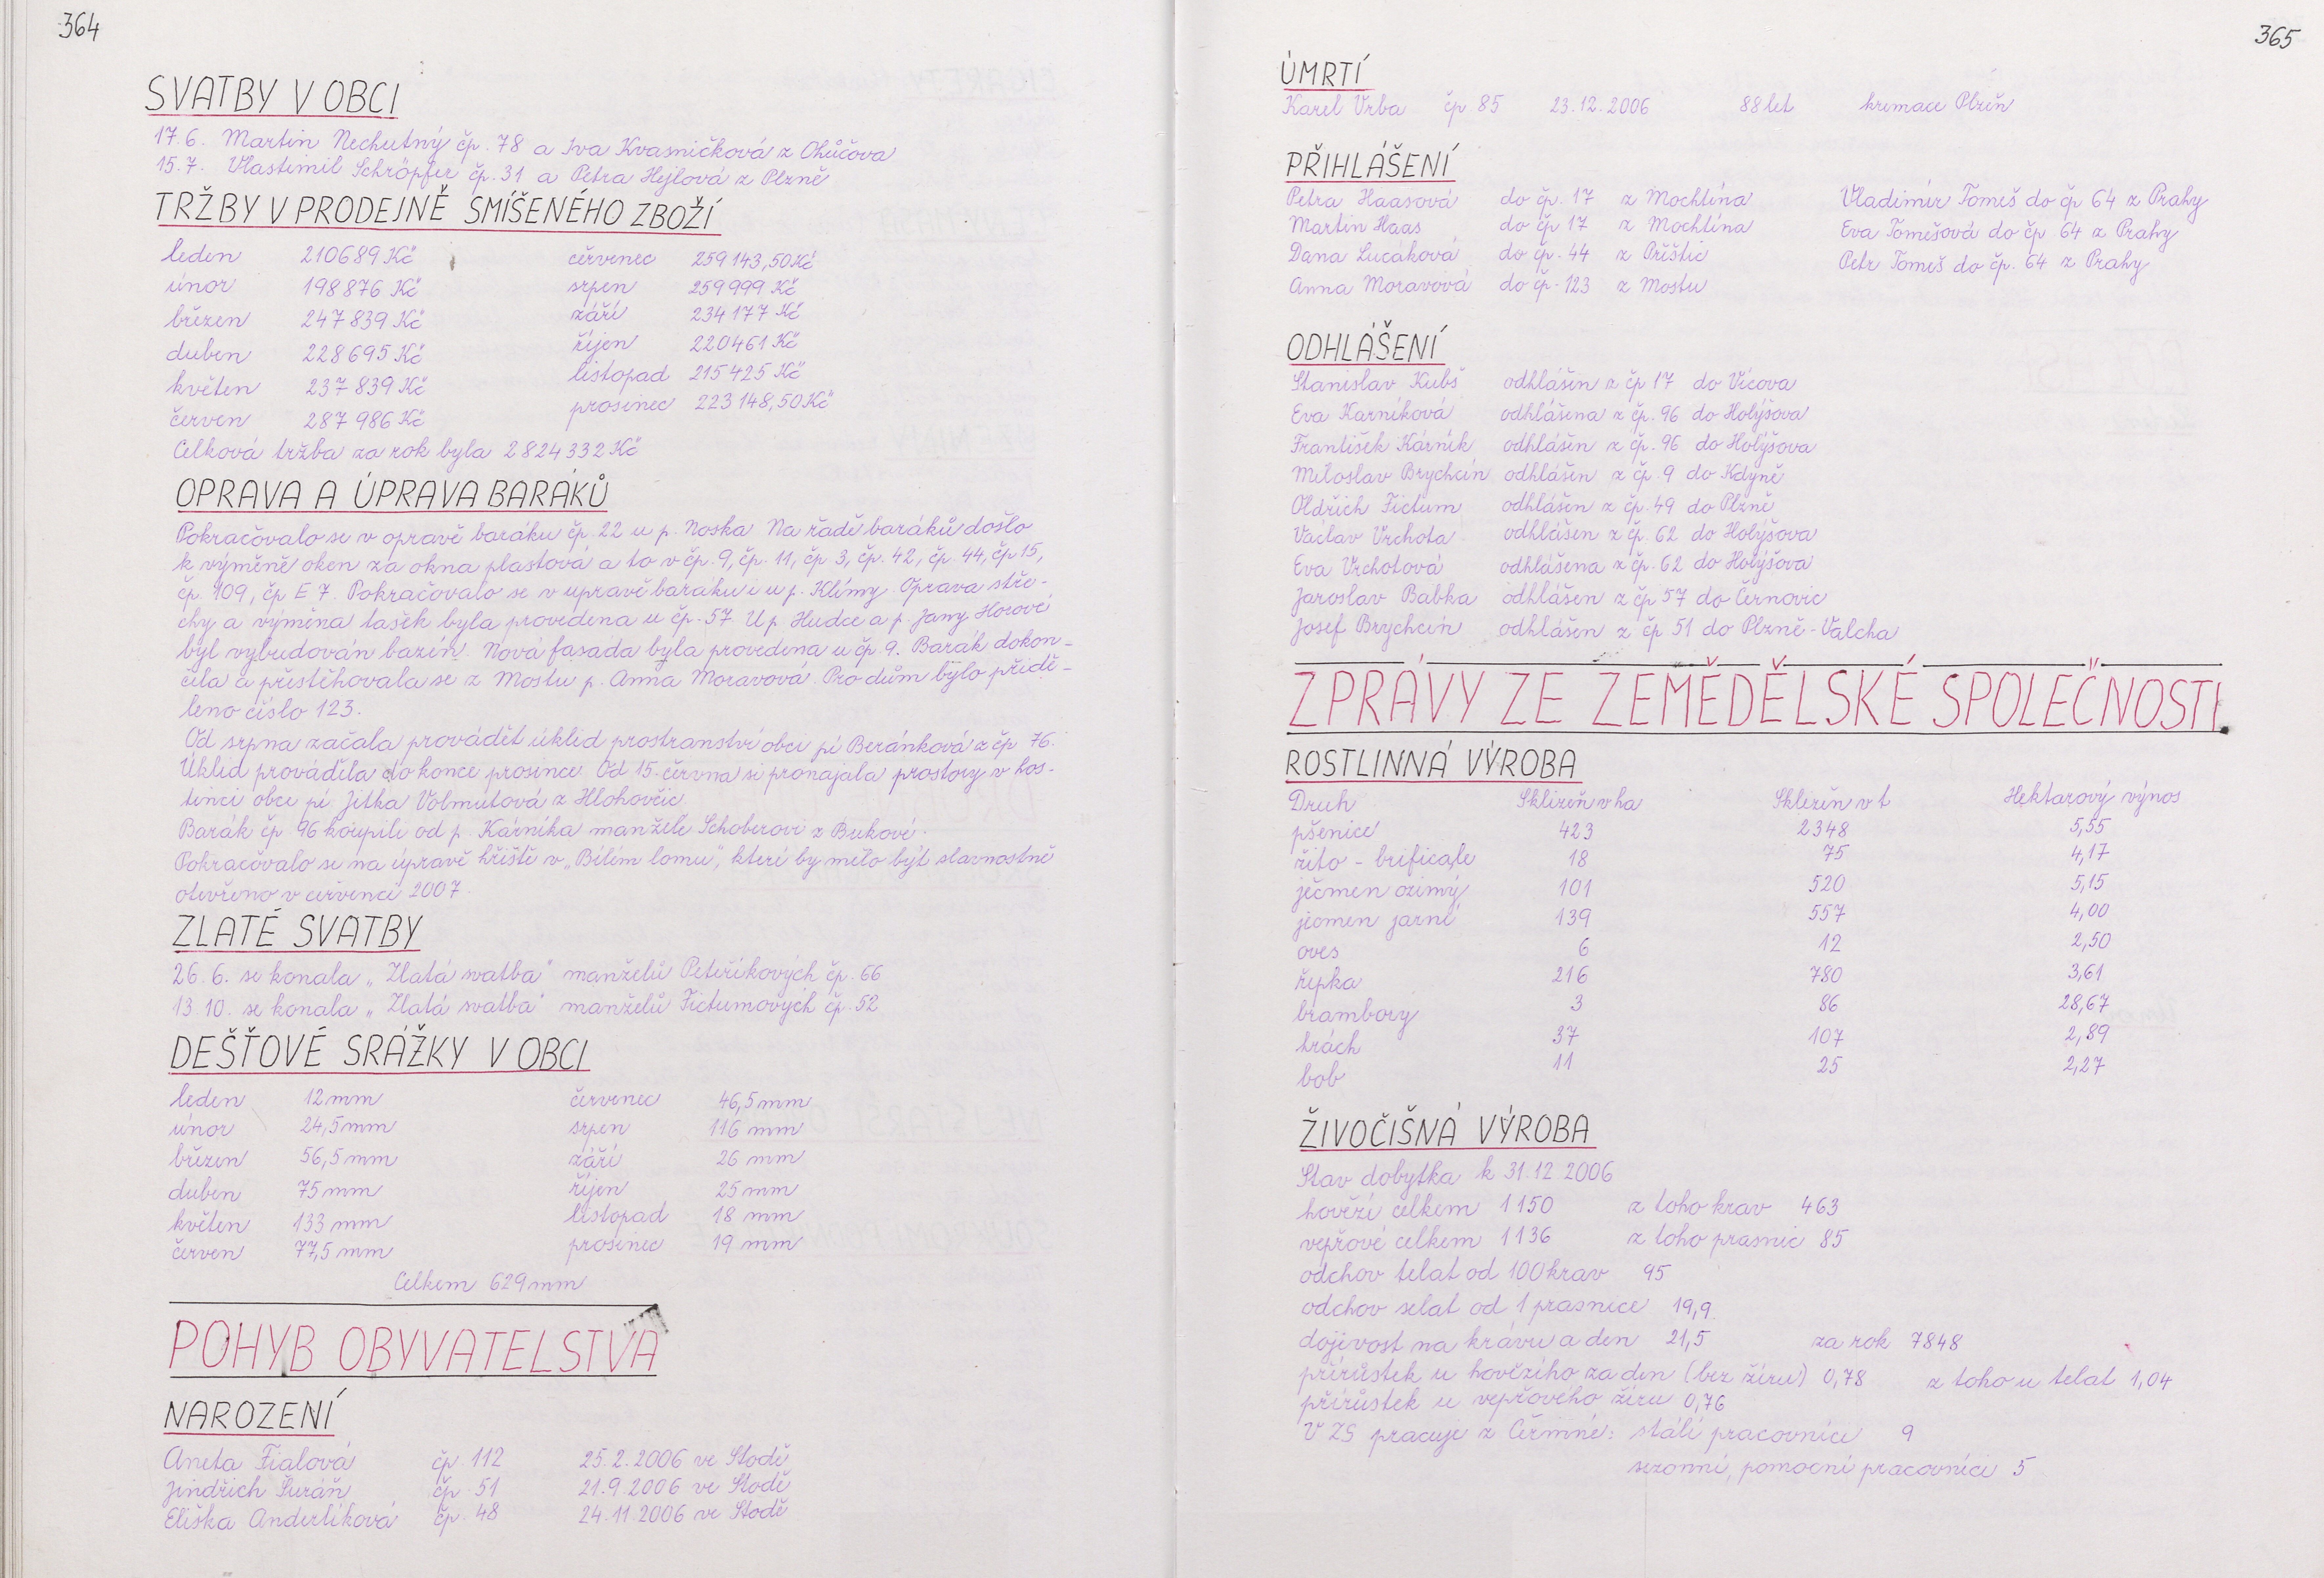 364
SVATBY V OBCI
17.6. Martin Nechutný čp. 78 a Iva Kvasničková z Ohůčova
15.7. Vlastimil Schröpfer čp. 31 a Petra Hejlová z Plzně
TRŽBY V PRODEJNĚ SMÍŠENÉHO ZBOŽÍ
leden 210689 Kč červenec 259 143,50 Kč
únor 198 876 Kč srpen 259 999 Kč
březen 247 839 Kč září 234 177 Kč
duben 228 695 Kč říjen 220 461 Kč
květen 237 839 Kč listopad 215 425 Kč
červen 287 986 Kč prosinec 223 148,50 Kč
Celková tržba za rok byla 2 824 332 Kč
OPRAVA A ÚPRAVA BARÁKŮ
Pokračovalo se v opravě baráku čp. 22 u p. Noska Na řadě baráků došlo
k výměně oken za okna plastová a to v čp. 9, čp. 11, čp 3, čp. 42, čp. 44, čp 15,
čp. 109, čp E 7. Pokračovalo se v úpravě baráku i u p. Klímy. Oprava stře-
chy a výměna tašek byla provedena u čp. 57. U p. Hudce a p. Jany Horové
byl vybudován bazén. Nová fasáda byla provedena u čp. 9. Barák dokon-
čila a přestěhovala se z Mostu p. Anna Moravová. Pro dům bylo přidě-
leno číslo 123.
Od srpna začala provádět úklid prostranství obci pí Beránková z čp 76.
Úklid prováděla do konce prosince. Od 15. června si pronajala prostory v hos-
tinci obce pí Jitka Volmutová z Hlohovčic
Barák čp 96 koupili od p. Kárníka manželé Schoberovi z Bukové.
Pokračovalo se na úpravě hřiště v „Bílém lomu", které by mělo být slavnostně
otevřeno v červenci 2007.
ZLATÉ SVATBY
26.6. se konala „Zlatá svatba" manželů Peteříkových čp. 66
13.10. se konala „Zlatá svatba" manželů Fictumových čp. 52
DEŠŤOVÉ SRÁŽKY V OBCI
leden 12 mm červenec 46,5 mm
únor 24,5 mm srpen 116 mm
březen 56,5 mm září 26 mm
duben 75 mm říjen 25 mm
květen 133 mm listopad 18 mm
červen 77,5 mm prosinec 19 mm
Celkem 629 mm
POHYB OBYVATELSTVA
NAROZENÍ
Aneta Fialová čp. 112 25.2.2006 ve Stodě
Jindřich Šuráň čp. 51 21.9.2006 ve Stodě
Eliška Anderlíková čp. 48 24.11.2006 ve Stodě
365
ÚMRTÍ
Karel Vrba čp 85 23.12.2006 88 let kremace Plzeň
PŘIHLÁŠENÍ
Petra Haasová do čp. 17 z Mochtína Vladimír Tomeš do čp 64 z Prahy
Martin Haas do čp 17 z Mochtína Eva Tomešová do čp 64 z Prahy
Dana Lucáková do čp. 44 z Přeštic Petr Tomeš do čp. 64 z Prahy
Anna Moravová do čp. 123 z Mostu
ODHLÁŠENÍ
Stanislav Kubš odhlášen z čp 17 do Vícova
Eva Karníková odhlášena z čp. 96 do Holýšova
František Kárník odhlášen z čp. 96 do Holýšova
Miloslav Brychcín odhlášen z č.p. 9 do Kdyně
Oldřich Fictum odhlášen z čp. 49 do Plzně
Václav Vrchota odhlášen z čp. 62 do Holýšova
Eva Vrchotová odhlášena z čp. 62 do Holýšova
Jaroslav Babka odhlášen z čp 57 do Černovic
Josef Brychcín odhlášen z čp 51 do Plzně - Valcha
ZPRÁVY ZE ZEMĚDĚLSKÉ SPOLEČNOSTI
ROSTLINNÁ VÝROBA
Druh Sklizeň v ha Sklizeň v t Hektarový výnos
pšenice 423 2348 5,55
žito - brificale 18 75 4,17
ječmen ozimý 101 520 5,15
ječmen jarní 139 557 4,00
oves 6 12 2,50
řepka 216 780 3,61
brambory 3 86 28,67
hrách 37 107 2,89
bob 11 25 2,27
ŽIVOČIŠNÁ VÝROBA
Stav dobytka k 31.12.2006
hovězí celkem 1150 z toho krav 463
vepřové celkem 1136 z toho prasnic 85
odchov telat od 100 krav 95
odchov selat od 1 prasnice 19,9
dojivost na krávu a den 21,5 za rok 7848
přírůstek u hovězího za den (bez žíru) 0,78 z toho u telat 1,04
přírůstek u vepřového žíru 0,76
V ZS pracuje z Čermné: stálí pracovníci 9
sezonní, pomocní pracovníci 5